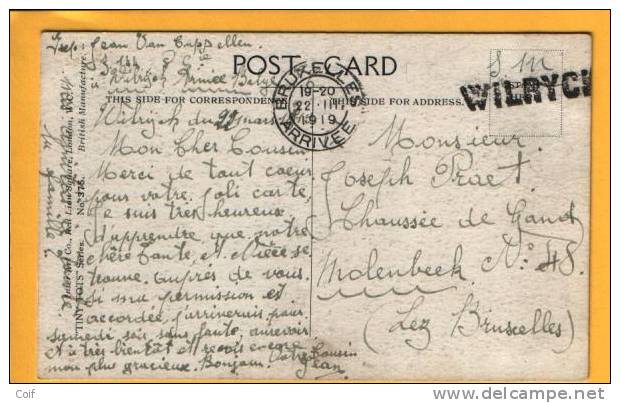 Jean Van Cappellen
S. M.
POST CARD
WILRYCK
BRUXELLES
19-20
22 III
1919
ARRIVÉE
THIS SIDE FOR CORRESPONDENCE
THIS SIDE FOR ADDRESS.
Wilrijck du 22 mars
Mon Cher Cousin
Merci de tout coeur
pour votre joli carte,
Je suis très heureux
d'apprendre que notre
chère Tante, et Nièce se
trouve auprès de vous.
Si ma permission est
accordée, j'arriverais pour
samedi soir sans faute, au revoir
et à très bientôt et reçois encore
mon plus gracieux Bonjour. Votre Cousin
Jean
Monsieur
Joseph Praet
Chaussée de Gand
Molenbeek. N° 48.
(Lez Bruxelles)
"TINY TOTS" Series. No. 378. British Manufacture.
Art Co., Red Lion Square, London, W.C.
famille
Coif
delcampe.net